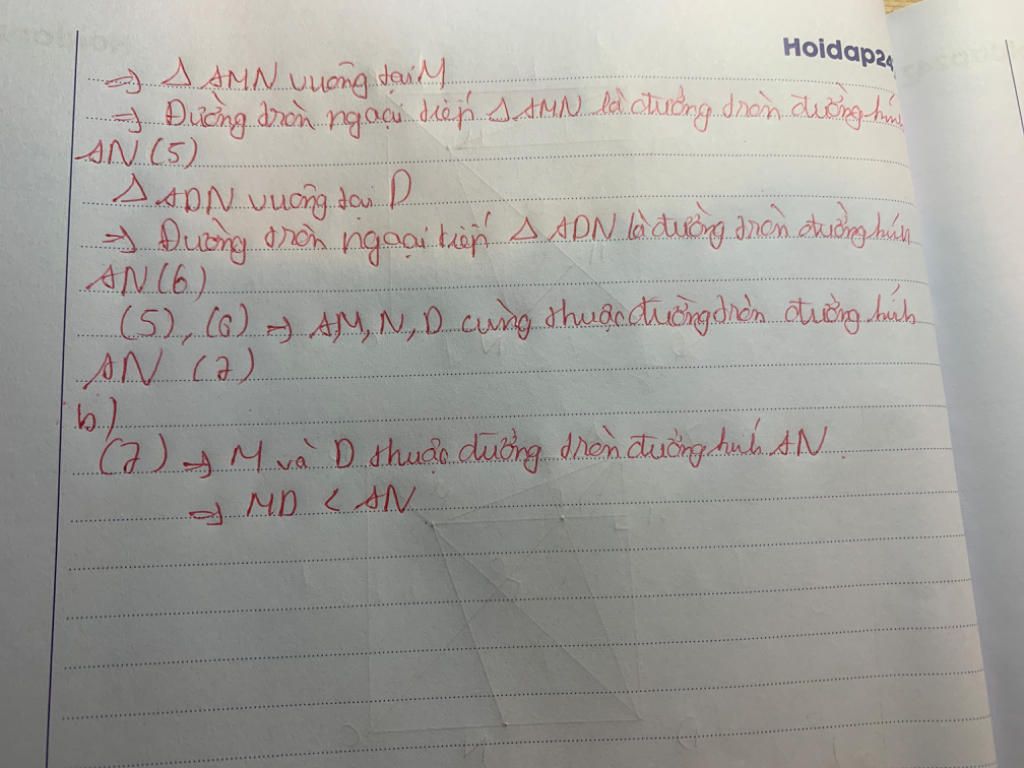 Hoidap24
=> Δ AMN vuông tại M
=> Đường tròn ngoại tiếp Δ AMN là đường tròn đường kính
AN (5)
Δ ADN vuông tại D
=> Đường tròn ngoại tiếp Δ ADN là đường tròn đường kính
AN (6)
(5), (6) => A,M, N, D cùng thuộc đường tròn đường kính
AN (7)
b)
(7) => M và D thuộc đường tròn đường kính AN.
=> MD < AN